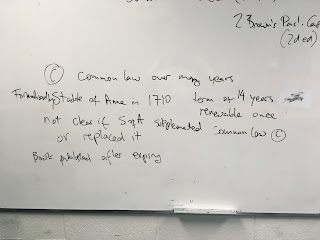 2 Brown's Parl. Cas
(2d ed)
© common law over many years
Statute of Anne in 1710 term of 14 years
renewable once
not clear if SofA supplemented common law ©
or replaced it
Book published after expiry